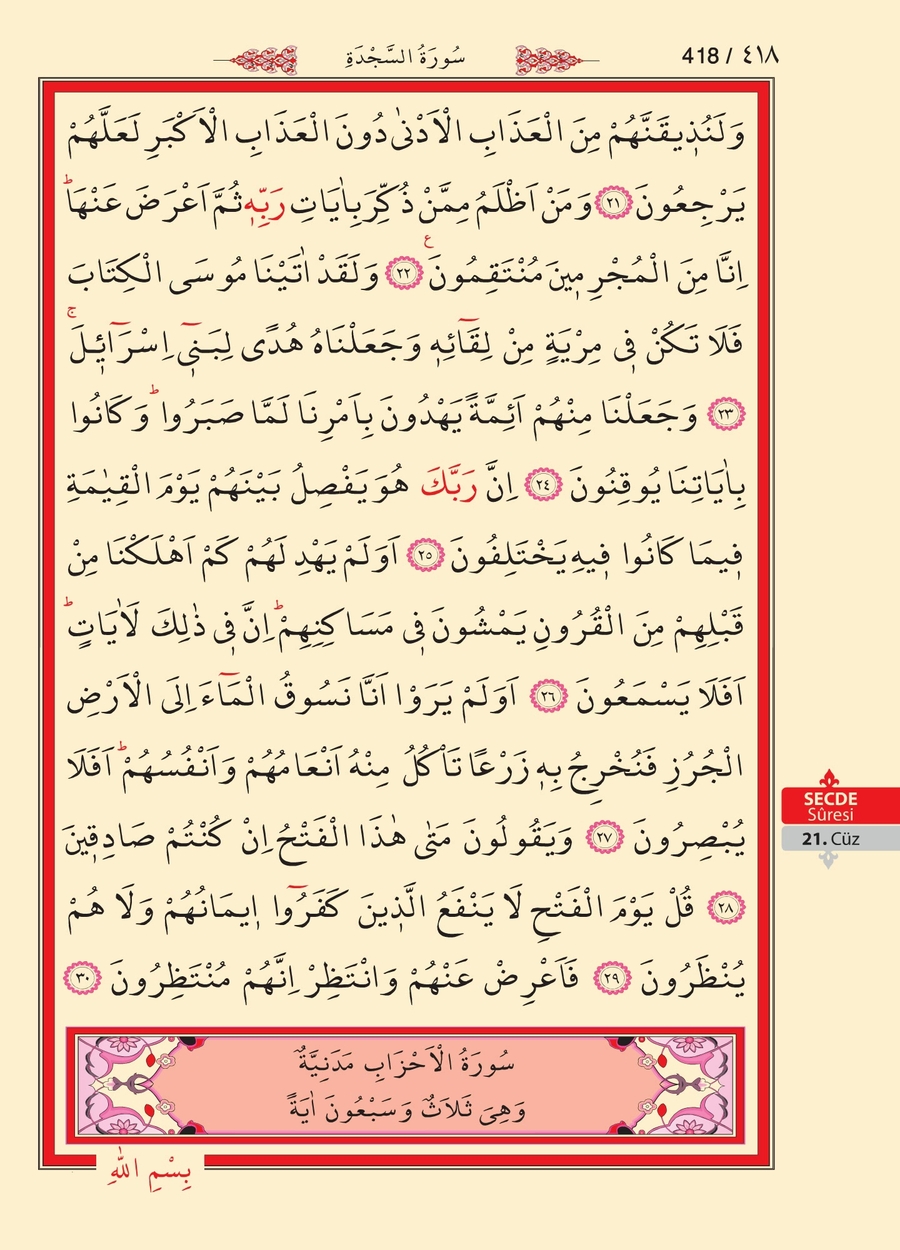 418 / ٤١٨
سُورَةُ السَّجْدَةِ
وَلَنُذ۪يقَنَّهُمْ مِنَ الْعَذَابِ الْاَدْنٰى دُونَ الْعَذَابِ الْاَكْبَرِ لَعَلَّهُمْ
يَرْجِعُونَ ﴿٢١﴾ وَمَنْ اَظْلَمُ مِمَّنْ ذُكِّرَ بِاٰيَاتِ رَبِّه۪ ثُمَّ اَعْرَضَ عَنْهَاۜ
اِنَّا مِنَ الْمُجْرِم۪ينَ مُنْتَقِمُونَ۟ ﴿٢٢﴾ وَلَقَدْ اٰتَيْنَا مُوسَى الْكِتَابَ
فَلَا تَكُنْ ف۪ي مِرْيَةٍ مِنْ لِقَٓائِه۪ وَجَعَلْنَاهُ هُدًى لِبَن۪ٓي اِسْرَٓائ۪لَۚ
﴿٢٣﴾ وَجَعَلْنَا مِنْهُمْ اَئِمَّةً يَهْدُونَ بِاَمْرِنَا لَمَّا صَبَرُواۜ وَكَانُوا
بِاٰيَاتِنَا يُوقِنُونَ ﴿٢٤﴾ اِنَّ رَبَّكَ هُوَ يَفْصِلُ بَيْنَهُمْ يَوْمَ الْقِيٰمَةِ
ف۪يمَا كَانُوا ف۪يهِ يَخْتَلِفُونَ ﴿٢٥﴾ اَوَلَمْ يَهْدِ لَهُمْ كَمْ اَهْلَكْنَا مِنْ
قَبْلِهِمْ مِنَ الْقُرُونِ يَمْشُونَ ف۪ي مَسَاكِنِهِمْۜ اِنَّ ف۪ي ذٰلِكَ لَاٰيَاتٍۜ
اَفَلَا يَسْمَعُونَ ﴿٢٦﴾ اَوَلَمْ يَرَوْا اَنَّا نَسُوقُ الْمَٓاءَ اِلَى الْاَرْضِ
الْجُرُزِ فَنُخْرِجُ بِه۪ زَرْعًا تَأْكُلُ مِنْهُ اَنْعَامُهُمْ وَاَنْفُسُهُمْۜ اَفَلَا
يُبْصِرُونَ ﴿٢٧﴾ وَيَقُولُونَ مَتٰى هٰذَا الْفَتْحُ اِنْ كُنْتُمْ صَادِق۪ينَ
﴿٢٨﴾ قُلْ يَوْمَ الْفَتْحِ لَا يَنْفَعُ الَّذ۪ينَ كَفَرُٓوا ا۪يمَانُهُمْ وَلَا هُمْ
يُنْظَرُونَ ﴿٢٩﴾ فَاَعْرِضْ عَنْهُمْ وَانْتَظِرْ اِنَّهُمْ مُنْتَظِرُونَ ﴿٣٠﴾
سُورَةُ الْاَحْزَابِ مَدَنِيَّةٌ
وَهِيَ ثَلَاثٌ وَسَبْعُونَ اٰيَةً
بِسْمِ اللّٰهِ
SECDE
Sûresi
21. Cüz